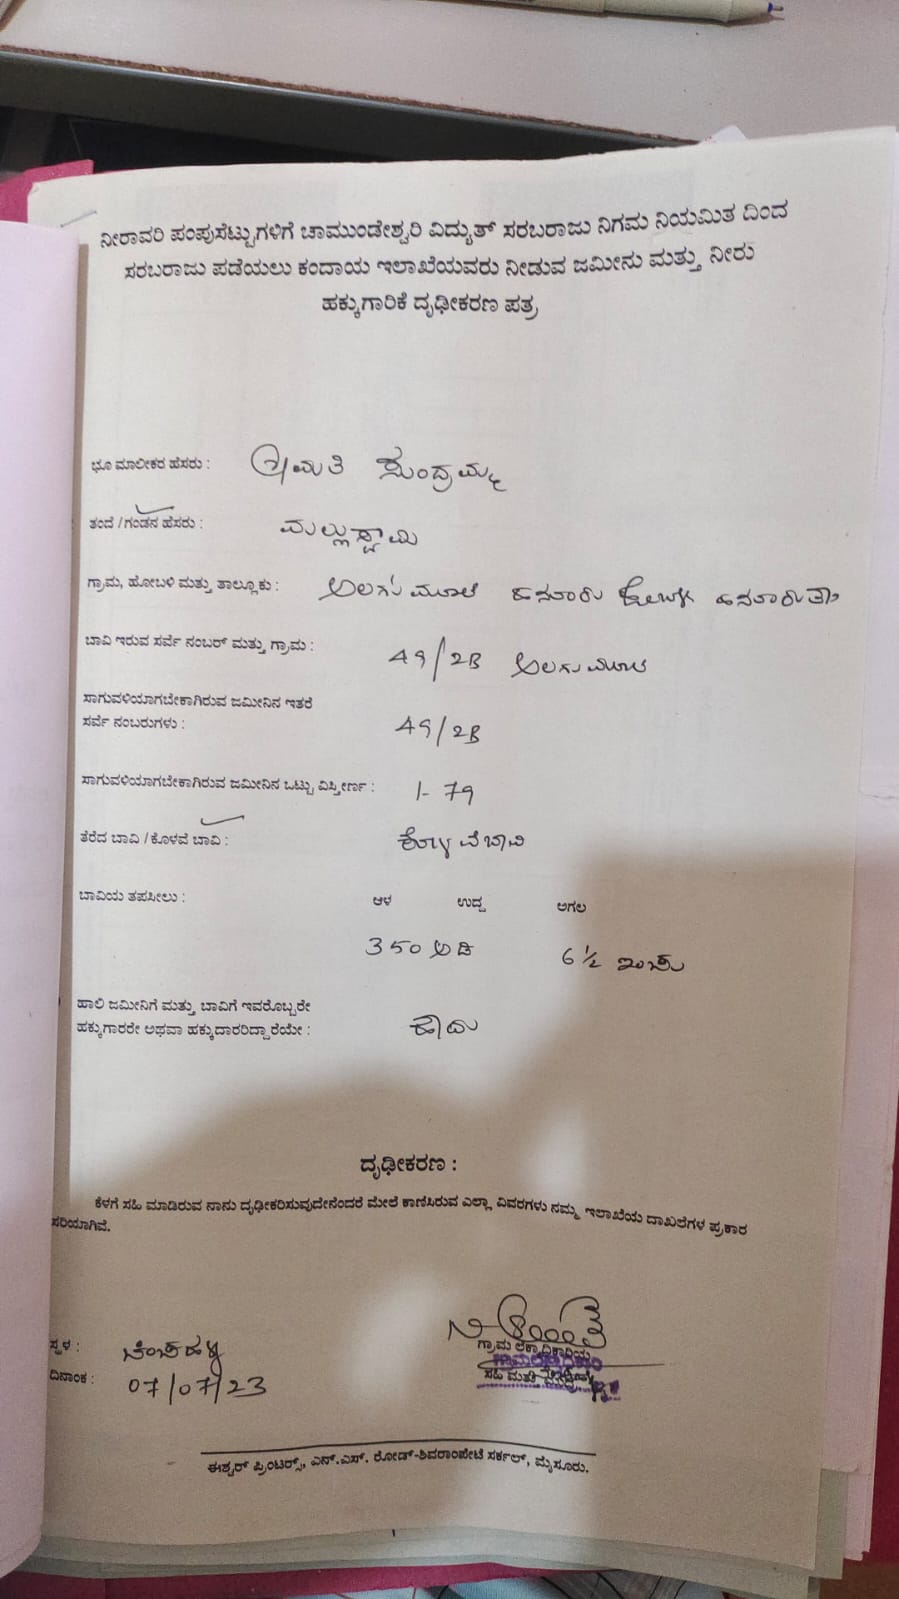 ನೀರಾವರಿ ಪಂಪುಸೆಟ್ಟುಗಳಿಗೆ ಚಾಮುಂಡೇಶ್ವರಿ ವಿದ್ಯುತ್ ಸರಬರಾಜು ನಿಗಮ ನಿಯಮಿತ ದಿಂದ
ಸರಬರಾಜು ಪಡೆಯಲು ಕಂದಾಯ ಇಲಾಖೆಯವರು ನೀಡುವ ಜಮೀನು ಮತ್ತು ನೀರು
ಹಕ್ಕುಗಾರಿಕೆ ದೃಢೀಕರಣ ಪತ್ರ
ಭೂ ಮಾಲೀಕರ ಹೆಸರು : ಶ್ರೀಮತಿ ಸುಂದ್ರಮ್ಮ
ತಂದೆ / ಗಂಡನ ಹೆಸರು : ಮಲ್ಲುಸ್ವಾಮಿ
ಗ್ರಾಮ, ಹೋಬಳಿ ಮತ್ತು ತಾಲ್ಲೂಕು : ಅಲಗುಮೂಲೆ ಹನೂರು ಹೋಬಳಿ ಹನೂರು ತಾ
ಬಾವಿ ಇರುವ ಸರ್ವೆ ನಂಬರ್ ಮತ್ತು ಗ್ರಾಮ : 49/2B ಅಲಗುಮೂಲೆ
ಸಾಗುವಳಿಯಾಗಬೇಕಾಗಿರುವ ಜಮೀನಿನ ಇತರೆ
ಸರ್ವೆ ನಂಬರುಗಳು : 49/2B
ಸಾಗುವಳಿಯಾಗಬೇಕಾಗಿರುವ ಜಮೀನಿನ ಒಟ್ಟು ವಿಸ್ತೀರ್ಣ : 1-79
ತೆರೆದ ಬಾವಿ / ಕೊಳವೆ ಬಾವಿ : ಕೊಳವೆ ಬಾವಿ
ಬಾವಿಯ ತಪಸೀಲು : ಆಳ ಉದ್ದ ಅಗಲ
350 ಅಡಿ 6 ½ ಇಂಚು
ಹಾಲಿ ಜಮೀನಿಗೆ ಮತ್ತು ಬಾವಿಗೆ ಇವರೊಬ್ಬರೇ
ಹಕ್ಕುಗಾರರೇ ಅಥವಾ ಹಕ್ಕುದಾರರಿದ್ದಾರೆಯೇ : ಹೌದು
ದೃಢೀಕರಣ :
ಕೆಳಗೆ ಸಹಿ ಮಾಡಿರುವ ನಾನು ದೃಢೀಕರಿಸುವುದೇನೆಂದರೆ ಮೇಲೆ ಕಾಣಿಸಿರುವ ಎಲ್ಲಾ ವಿವರಗಳು ನಮ್ಮ ಇಲಾಖೆಯ ದಾಖಲೆಗಳ ಪ್ರಕಾರ
ಸರಿಯಾಗಿವೆ.
ಸ್ಥಳ :
ಗ್ರಾಮ ಲೆಕ್ಕಾಧಿಕಾರಿಯ
ದಿನಾಂಕ : 07/07/23
ಸಹಿ ಮತ್ತು
ಈಶ್ವರ್ ಪ್ರಿಂಟರ್ಸ್, ಎನ್.ಎಸ್. ರೋಡ್-ಶಿವರಾಂಪೇಟೆ ಸರ್ಕಲ್, ಮೈಸೂರು.